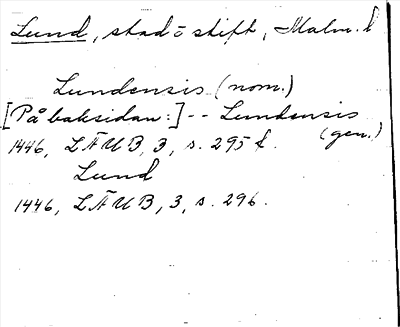 Lund, stad o stift, Malm. l
Lundensis (nom.)
[På baksidan:] -- Lundensis
(gen.)
1446, LÄUB, 3, s. 295 f.
Lund
1446, LÄUB, 3, s. 296.